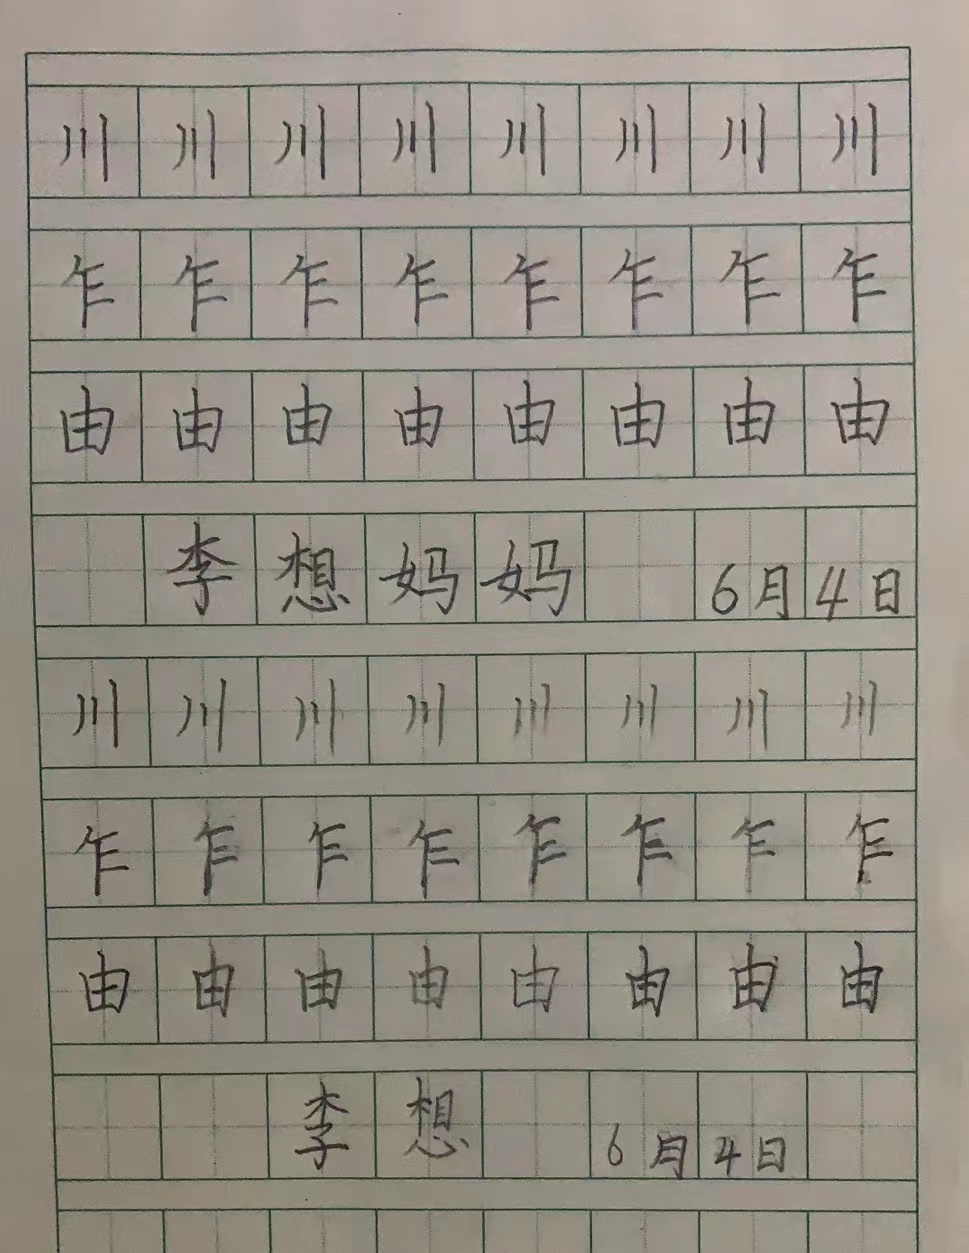 川川川川川川川川
乍乍乍乍乍乍乍乍
由由由由由由由由
李想妈妈 6月4日
川川川川川川川川
乍乍乍乍乍乍乍乍
由由由由由由由由
李想 6月4日